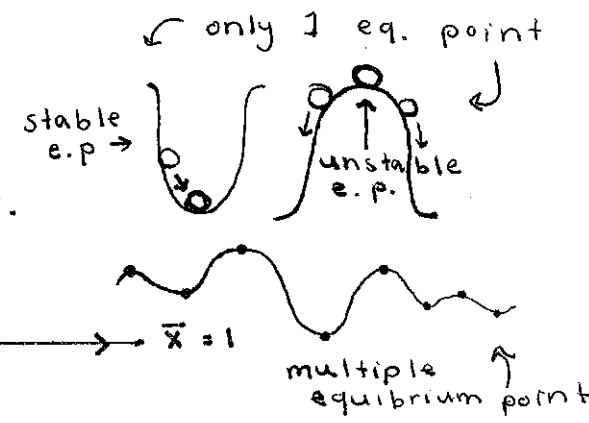 only 1 eq. point
stable
e.p
unstable
e. p.
x̄ = 1
multiple
equibrium point